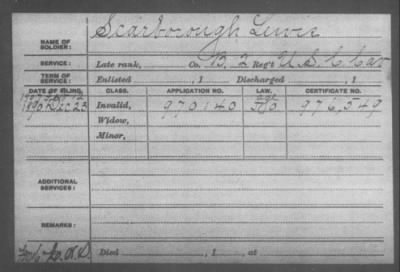 NAME OF SOLDIER: Scarborough Lewis
SERVICE: Late rank, Co. B. 2 Reg't U.S.C. Cav
TERM OF SERVICE: Enlisted , 1 Discharged , 1
DATE OF FILING. CLASS. APPLICATION NO. LAW. CERTIFICATE NO.
1890 Dec 23 Invalid, 970140 976,549
Widow,
Minor,
ADDITIONAL SERVICES:
REMARKS:
Died , 1 , at